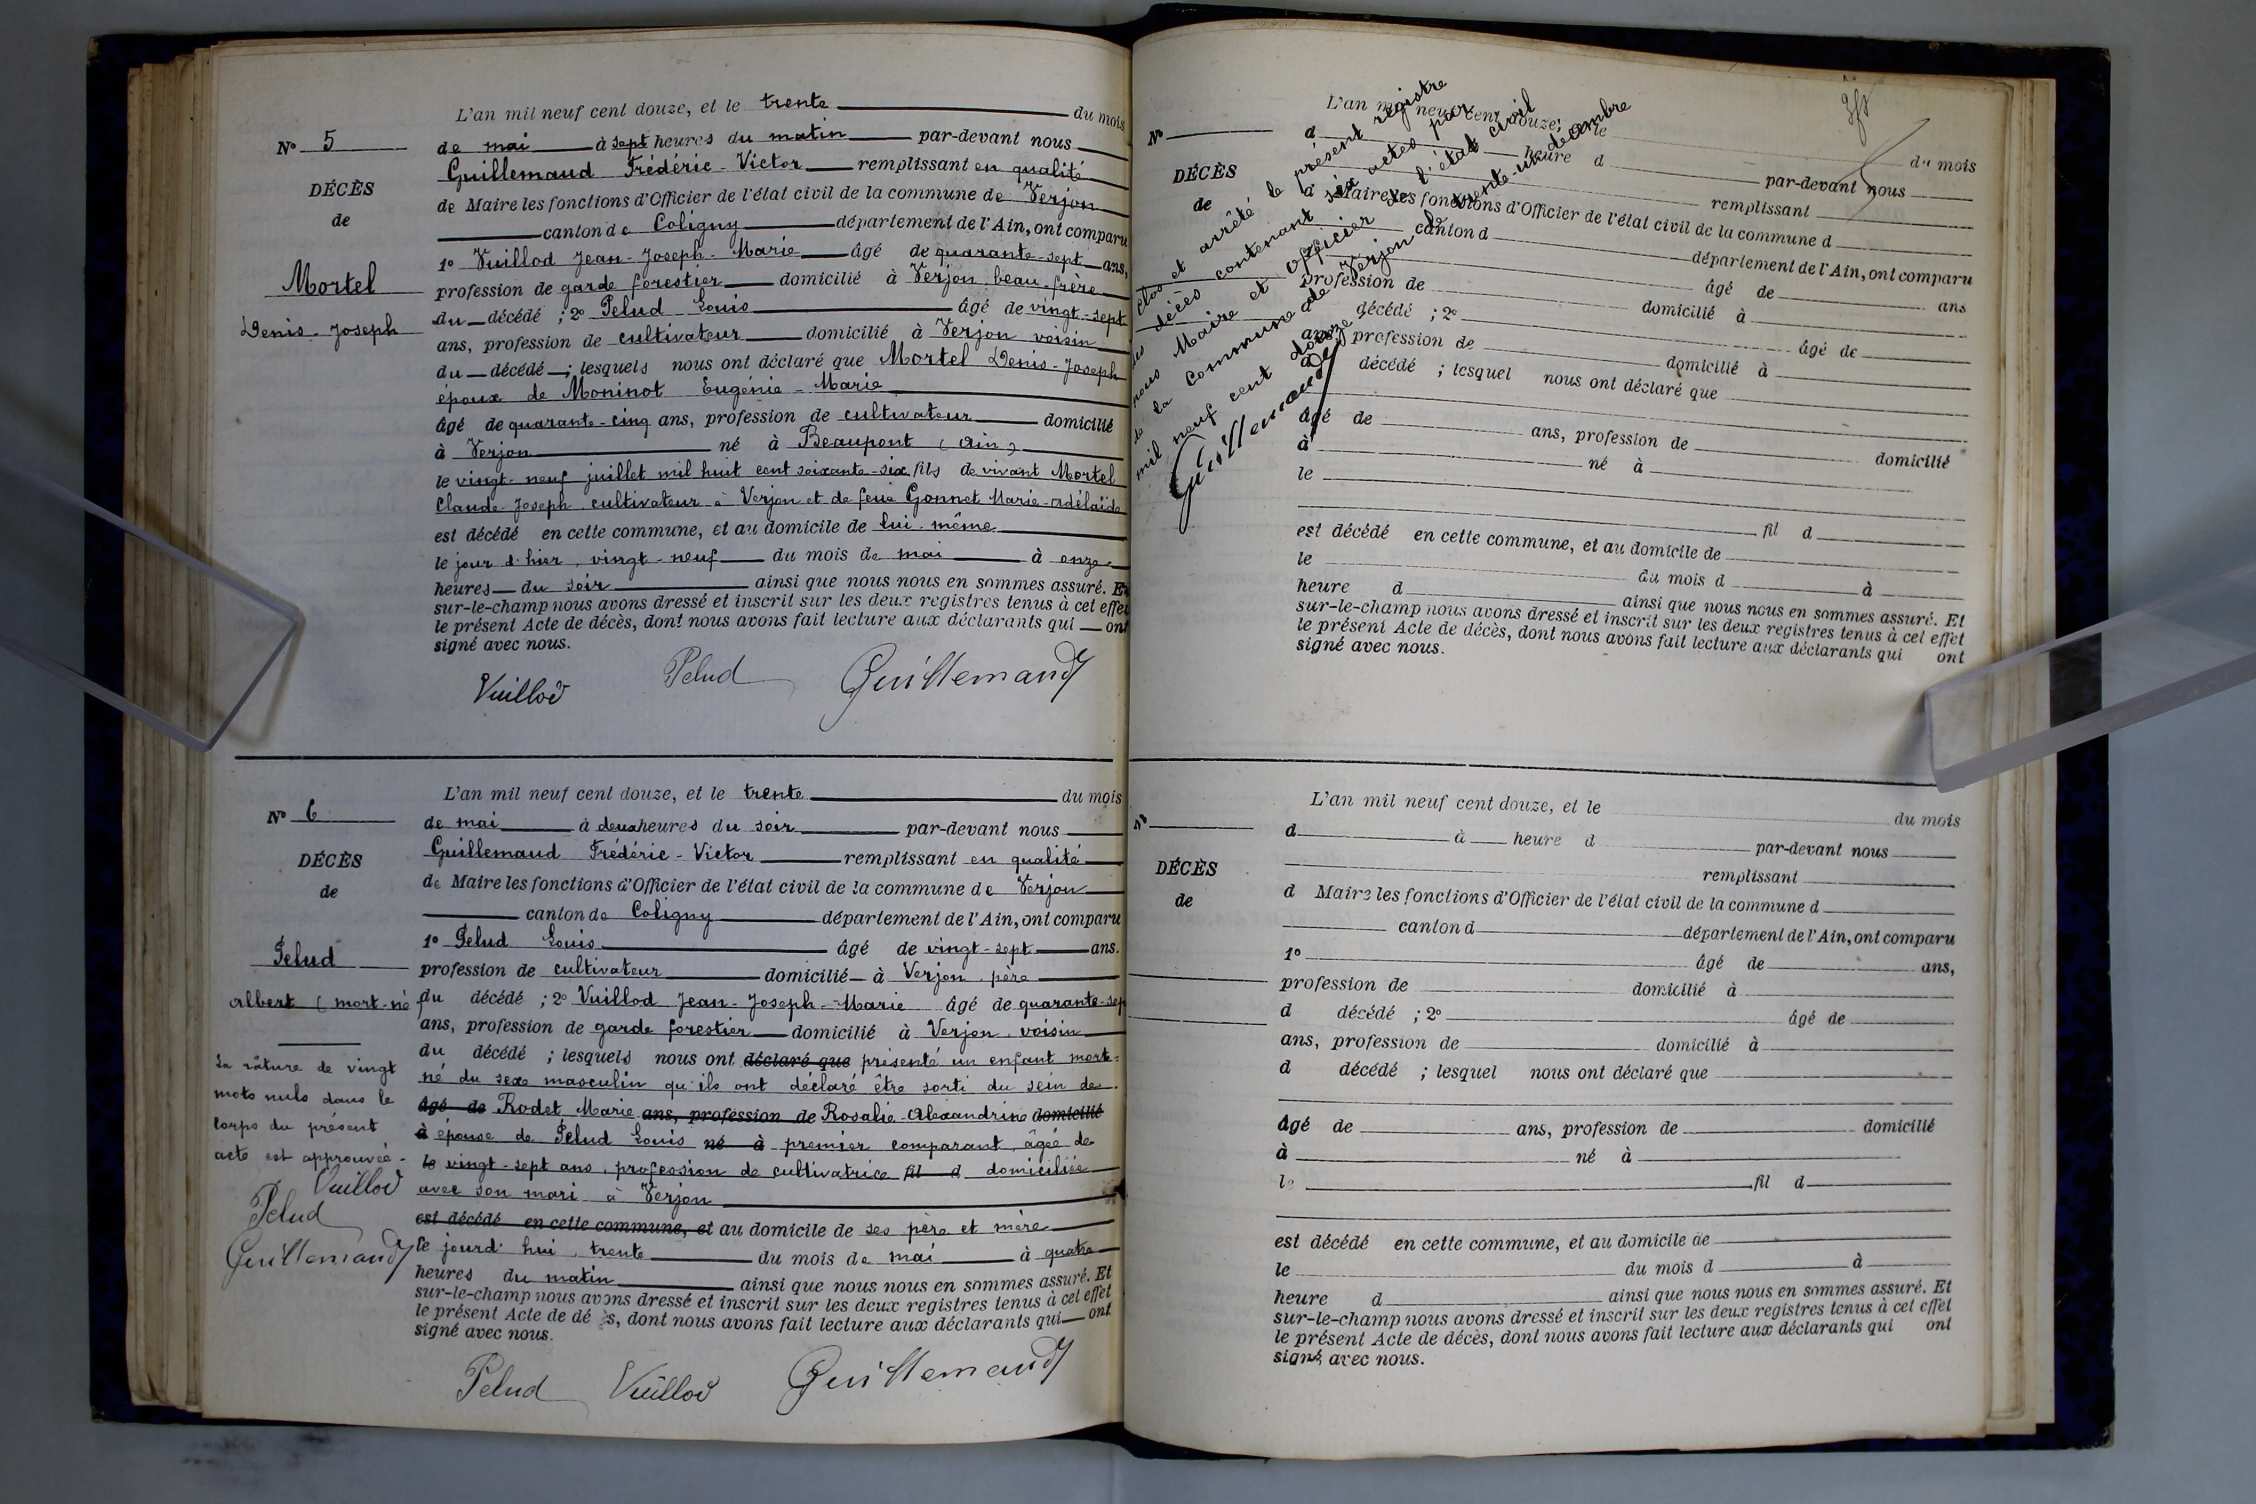 L'an mil neuf cent douze, et le trente du mois
N° 5
de mai à sept heures du matin par-devant nous
Guillemaud Frédéric-Victor remplissant en qualité
DÉCÈS
de Maire les fonctions d'Officier de l'état civil de la commune de Verjon
de
canton de Coligny département de l'Ain, ont comparu
1° Vuillod Jean-Joseph-Marie âgé de quarante-sept ans,
Mortel
profession de garde forestier domicilié à Verjon, beau-frère
Denis-Joseph
du décédé ; 2° Pelud Louis âgé de vingt-sept
ans, profession de cultivateur domicilié à Verjon voisin
du décédé ; lesquels nous ont déclaré que Mortel Denis-Joseph
époux de Moninot Eugénie-Marie
âgé de quarante-cinq ans, profession de cultivateur domicilié
à Verjon né à Beaupont (Ain)
le vingt-neuf juillet mil huit cent soixante-six fils de vivant Mortel
Claude-Joseph, cultivateur à Verjon et de feue Gonnet Marie-Adélaïde
est décédé en cette commune, et au domicile de lui-même
le jour d'hier, vingt-neuf du mois de mai à onze
heures du soir ainsi que nous nous en sommes assuré. Et
sur-le-champ nous avons dressé et inscrit sur les deux registres tenus à cet effet
le présent Acte de décès, dont nous avons fait lecture aux déclarants qui ont
signé avec nous.
Vuillod Pelud Guillemaud
L'an mil neuf cent douze, et le trente du mois
N° 6
de mai à deux heures du soir par-devant nous
Guillemaud Frédéric-Victor remplissant en qualité
DÉCÈS
de Maire les fonctions d'Officier de l'état civil de la commune de Verjon
de
canton de Coligny département de l'Ain, ont comparu
1° Pelud Louis âgé de vingt-sept ans.
Pelud
profession de cultivateur domicilié à Verjon, père
Albert (mort-né
du décédé ; 2° Vuillod Jean-Joseph-Marie âgé de quarante-sep
ans, profession de garde forestier domicilié à Verjon, voisin
du décédé ; lesquels nous ont déclaré que présenté un enfant mort-
né du sexe masculin qu'ils ont déclaré être sorti du sein de
âgé de Rodet Marie ans, profession de Rosalie-Alexandrine domicilié
à épouse de Pelud Louis né à premier comparant, âgée de
le vingt-sept ans, profession de cultivatrice fil d domiciliée
avec son mari à Verjon
est décédé en cette commune, et au domicile de ses père et mère
le jourd'hui, trente du mois de mai à quatre
heures du matin ainsi que nous nous en sommes assuré. Et
sur-le-champ nous avons dressé et inscrit sur les deux registres tenus à cet effet
le présent Acte de dé s, dont nous avons fait lecture aux déclarants qui ont
signé avec nous.
Pelud Vuillod Guillemaud
La râture de vingt
mots nuls dans le
corps du présent
acte est approuvée.
Vuillod
Pelud
Guillemaud
Clos et arrêté le présent registre
des décès contenant six actes par
nous Maire et officier de l'état civil
de la commune de Verjon le trente-un décembre
mil neuf cent douze
Guillemaud
L'an mil neuf cent douze, et le du mois
N°
d heure d par-devant nous
remplissant
DÉCÈS
d Maire les fonctions d'Officier de l'état civil de la commune d
de
canton d département de l'Ain, ont comparu
âgé de ans
profession de domicilié à
décédé ; 2° âgé de
ans, profession de domicilié à
d décédé ; lesquel nous ont déclaré que
âgé de ans, profession de domicilié
à né à
le
fil d
est décédé en cette commune, et au domicile de
le du mois d à
heure d ainsi que nous nous en sommes assuré. Et
sur-le-champ nous avons dressé et inscrit sur les deux registres tenus à cet effet
le présent Acte de décès, dont nous avons fait lecture aux déclarants qui ont
signé avec nous.
L'an mil neuf cent douze, et le du mois
N°
d à heure d par-devant nous
remplissant
DÉCÈS
d Maire les fonctions d'Officier de l'état civil de la commune d
de
canton d département de l'Ain, ont comparu
1° âgé de ans,
profession de domicilié à
d décédé ; 2° âgé de
ans, profession de domicilié à
d décédé ; lesquel nous ont déclaré que
âgé de ans, profession de domicilié
à né à
le fil d
est décédé en cette commune, et au domicile de
le du mois d à
heure d ainsi que nous nous en sommes assuré. Et
sur-le-champ nous avons dressé et inscrit sur les deux registres tenus à cet effet
le présent Acte de décès, dont nous avons fait lecture aux déclarants qui ont
signé avec nous.